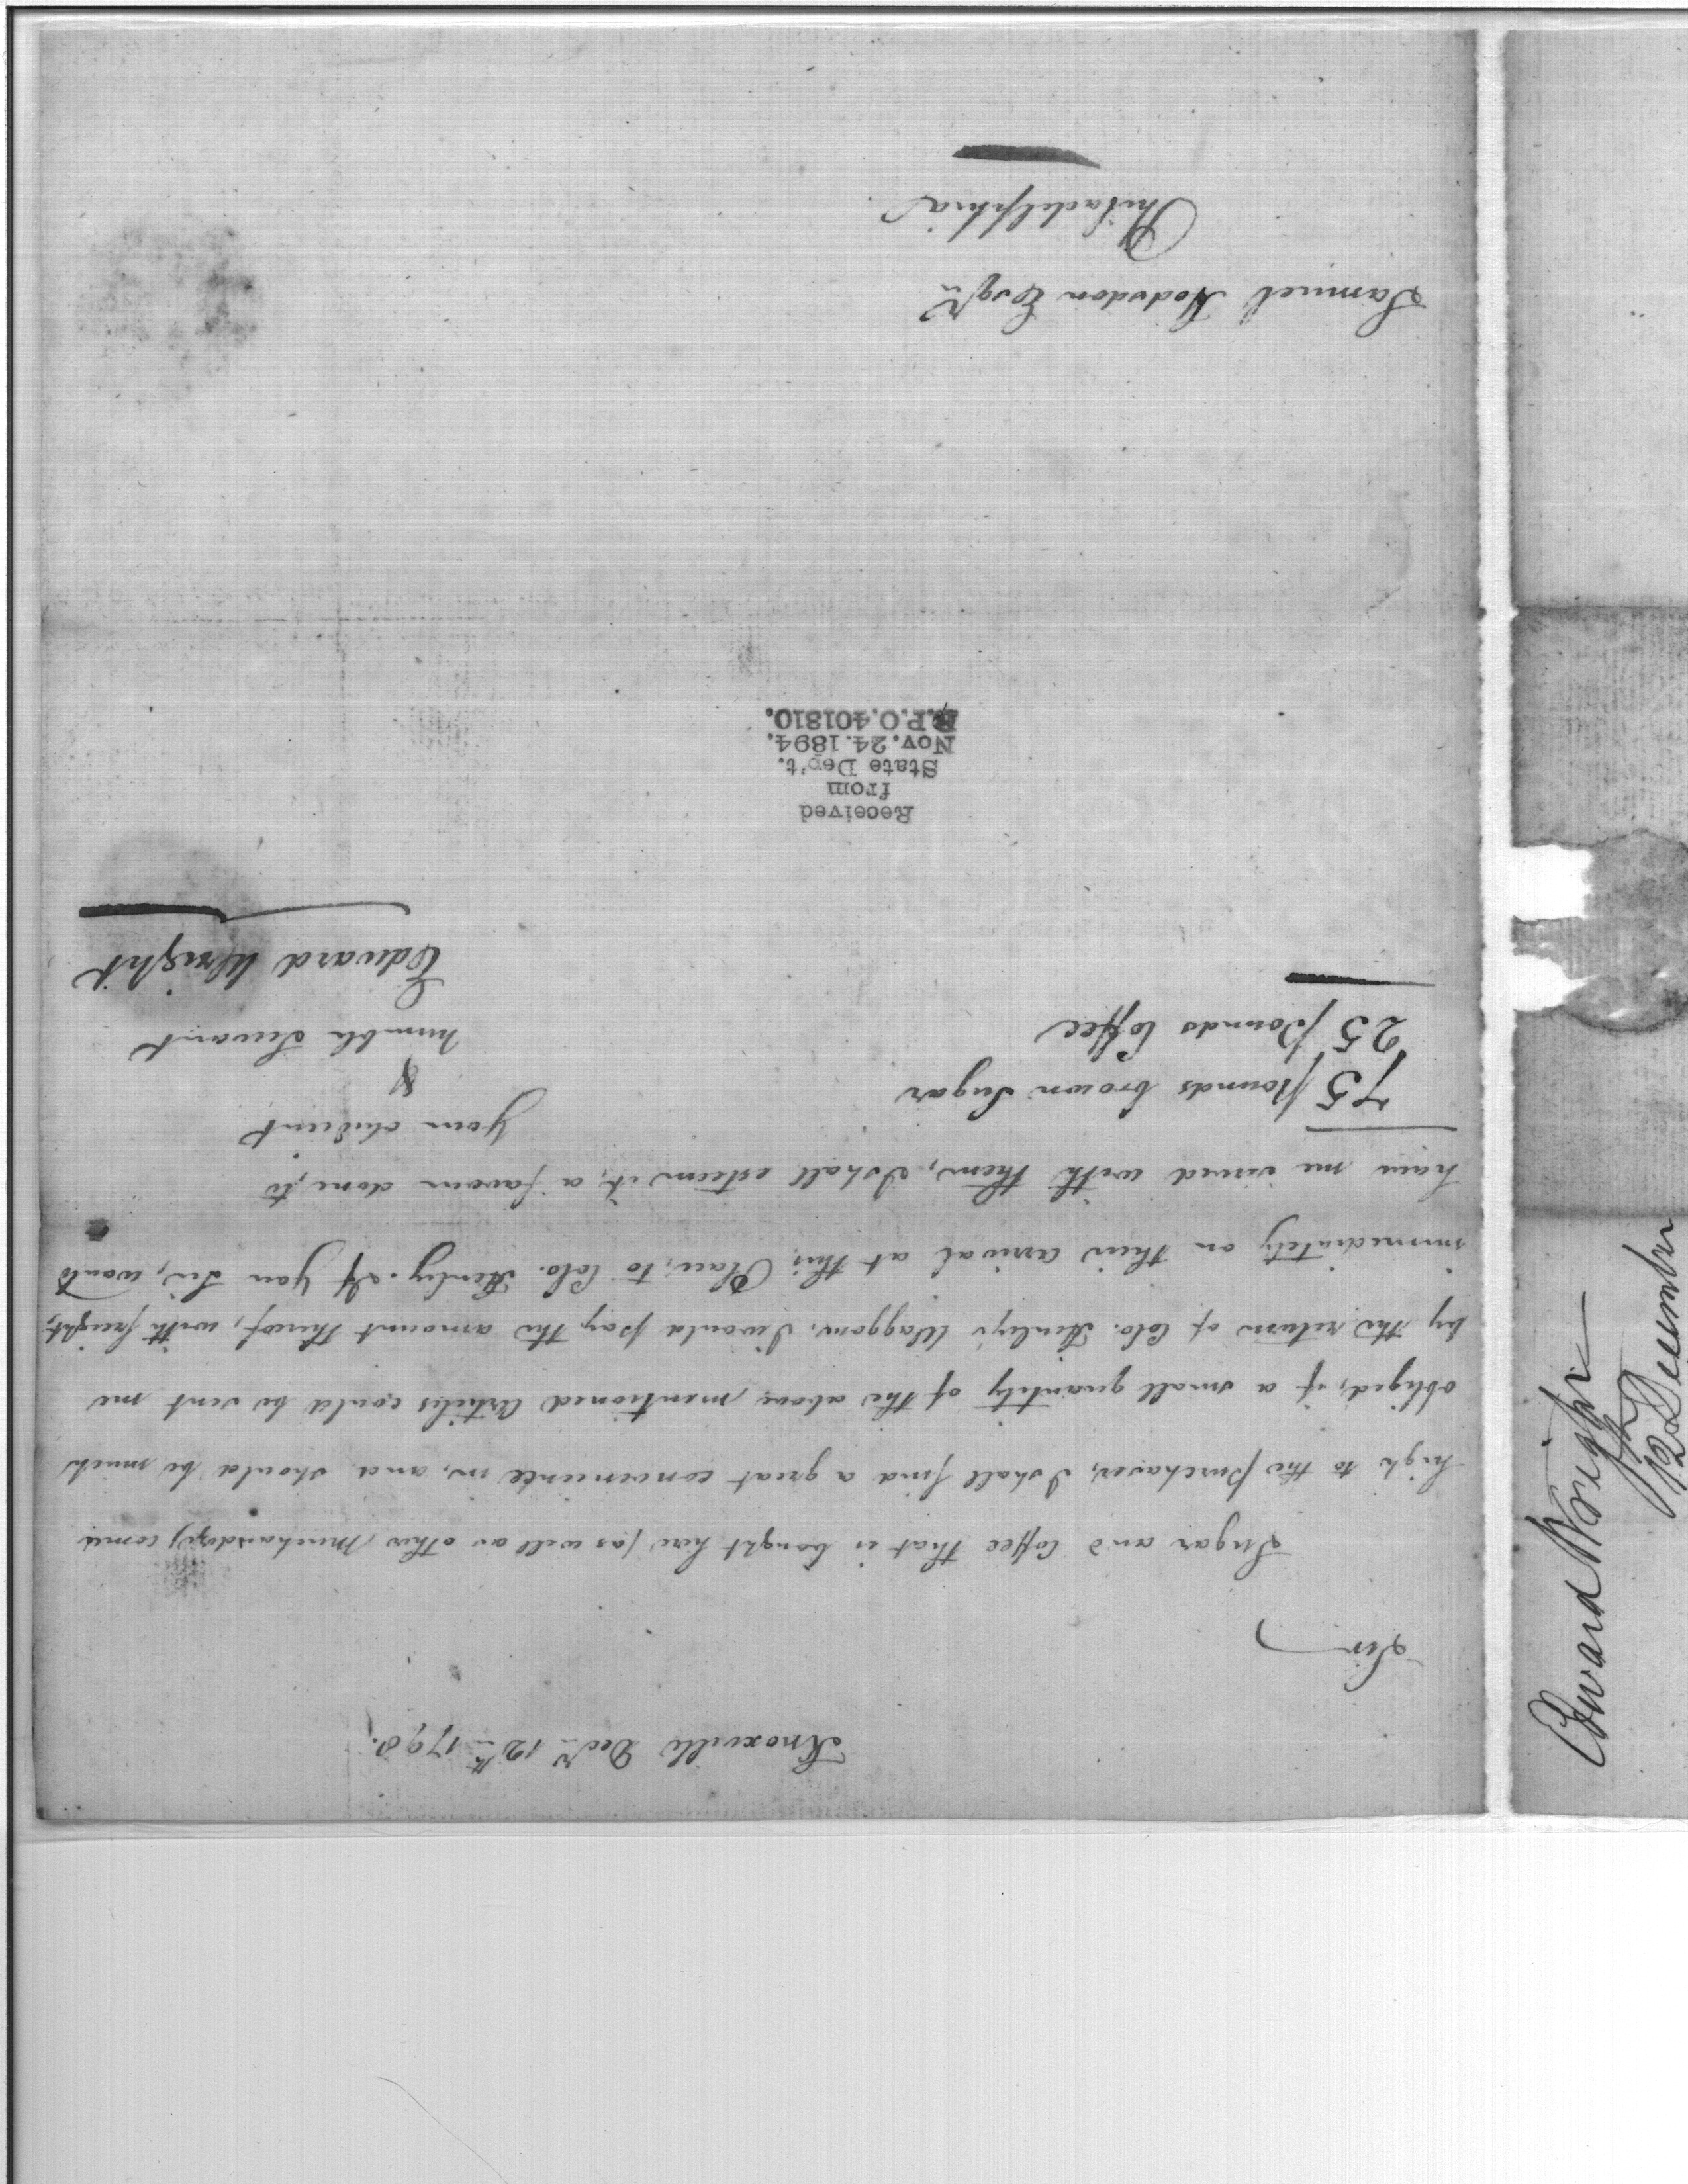 Knoxville Decr. 12th 1798.
Sir
Sugar and Coffee that is bought here (as well as other Merchandize) comes
high to the purchaser, I shall find a great convenience in, and should be much
obliged, if a small quantity of the above mentioned Articles could be sent me
by the return of Colo. Henley's Waggons. I would pay the amount thereof, with freight,
immediately on their arrival at this Place, to Colo. Henley. If you Sir, would
have me served with them, I shall esteem it, a favour done, to
your obedient
&
humble Servant
Edward Wright
75 pounds brown Sugar
25 pounds Coffee
Received
from
State Dep't.
Nov. 24. 1894.
R.P.O. 401810.
Samuel Hodsdon Esqr.
Philadelphia
Edward Wright
12th December